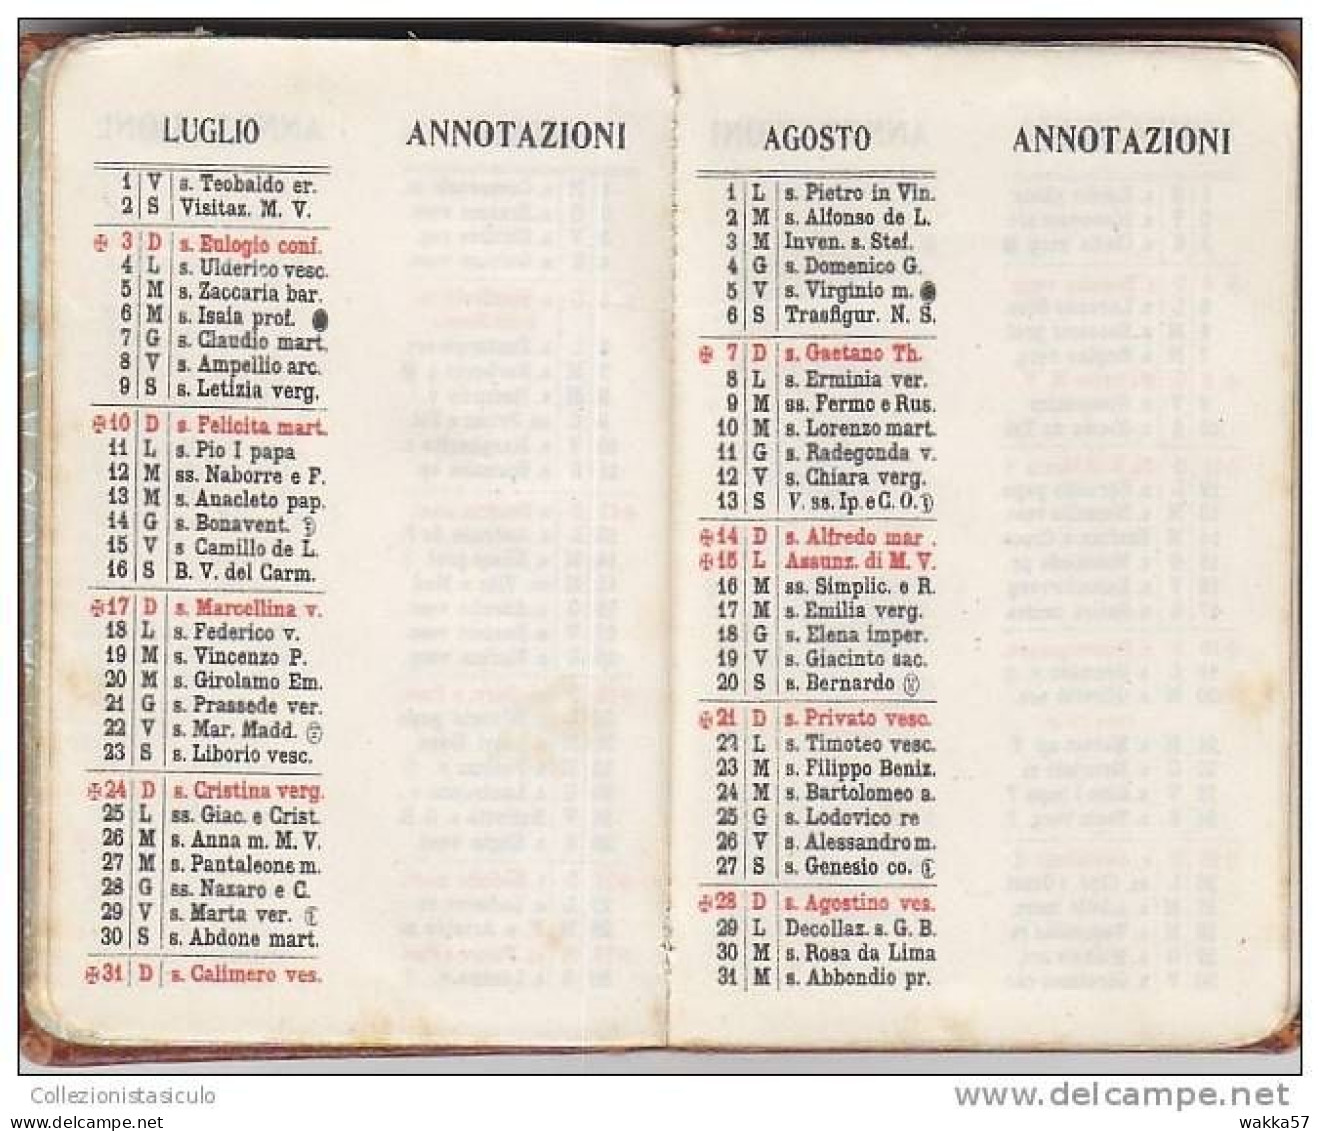 LUGLIO
ANNOTAZIONI
1 V s. Teobaldo er.
2 S Visitaz. M. V.
✠ 3 D s. Eulogio conf.
4 L s. Ulderico vesc.
5 M s. Zaccaria bar.
6 M s. Isaia prof.
7 G s. Claudio mart.
8 V s. Ampellio arc.
9 S s. Letizia verg.
✠ 10 D s. Felicita mart.
11 L s. Pio I papa
12 M ss. Naborre e F.
13 M s. Anacleto pap.
14 G s. Bonavent.
15 V s Camillo de L.
16 S B. V. del Carm.
✠ 17 D s. Marcellina v.
18 L s. Federico v.
19 M s. Vincenzo P.
20 M s. Girolamo Em.
21 G s. Prassede ver.
22 V s. Mar. Madd.
23 S s. Liborio vesc.
✠ 24 D s. Cristina verg.
25 L ss. Giac. e Crist.
26 M s. Anna m. M. V.
27 M s. Pantaleone m.
28 G ss. Nazaro e C.
29 V s. Marta ver.
30 S s. Abdone mart.
✠ 31 D s. Calimero ves.
AGOSTO
ANNOTAZIONI
1 L s. Pietro in Vin.
2 M s. Alfonso de L.
3 M Inven. s. Stef.
4 G s. Domenico G.
5 V s. Virginio m.
6 S Trasfigur. N. S.
✠ 7 D s. Gaetano Th.
8 L s. Erminia ver.
9 M ss. Fermo e Rus.
10 M s. Lorenzo mart.
11 G s. Radegonda v.
12 V s. Chiara verg.
13 S V. ss. Ip. e C. O.
✠ 14 D s. Alfredo mar .
✠ 15 L Assunz. di M. V.
16 M ss. Simplic. e R.
17 M s. Emilia verg.
18 G s. Elena imper.
19 V s. Giacinto sac.
20 S s. Bernardo
✠ 21 D s. Privato vesc.
22 L s. Timoteo vesc.
23 M s. Filippo Beniz.
24 M s. Bartolomeo a.
25 G s. Lodovico re
26 V s. Alessandro m.
27 S s. Genesio co.
✠ 28 D s. Agostino ves.
29 L Decollaz. s. G. B.
30 M s. Rosa da Lima
31 M s. Abbondio pr.
Collezionistasiculo
www.delcampe.net
wakka57